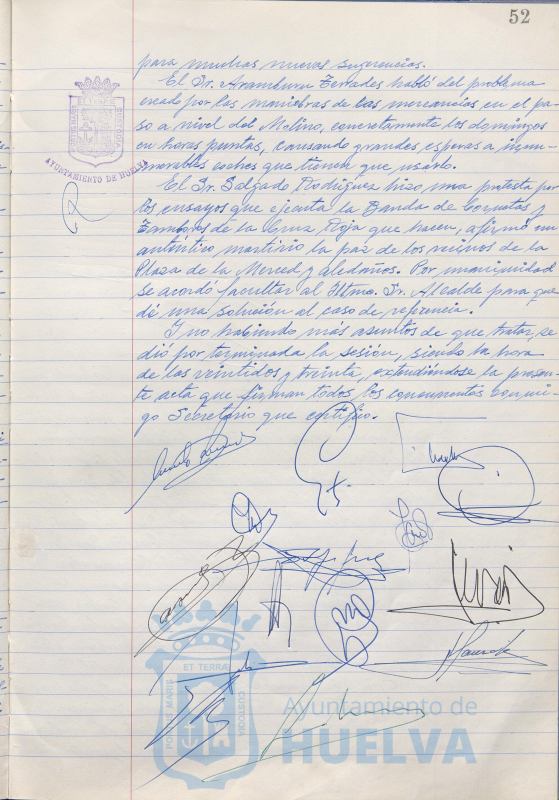 52
para muchas nuevas sugerencias.
El Sr. Aramburu Terrades habló del problema
creado por las maniobras de las mercancías en el pa-
so a nivel del Molino, concretamente los domingos
en horas puntas, causando grandes esperas a innu-
merables coches que tienen que usarlo.
El Sr. Salgado Rodríguez hizo una protesta por
los ensayos que ejecuta la Banda de Cornetas y
Tambores de la Cruz Roja que hacen, afirmó un
auténtico martirio la paz de los vecinos de la
Plaza de la Merced y aledaños. Por unanimidad
se acordó facultar al Iltmo. Sr. Alcalde para que
dé una solución al caso de referencia.
Y no habiendo más asuntos de que tratar, se
dió por terminada la sesión, siendo la hora
de las veintidos y treinta, extendiéndose la presen-
te acta que firman todos los concurrentes conmi-
go Secretario que certifico.
AYUNTAMIENTO DE HUELVA
PORTUS MARIS ET TERRAE CUSTODIA
Ayuntamiento de
HUELVA